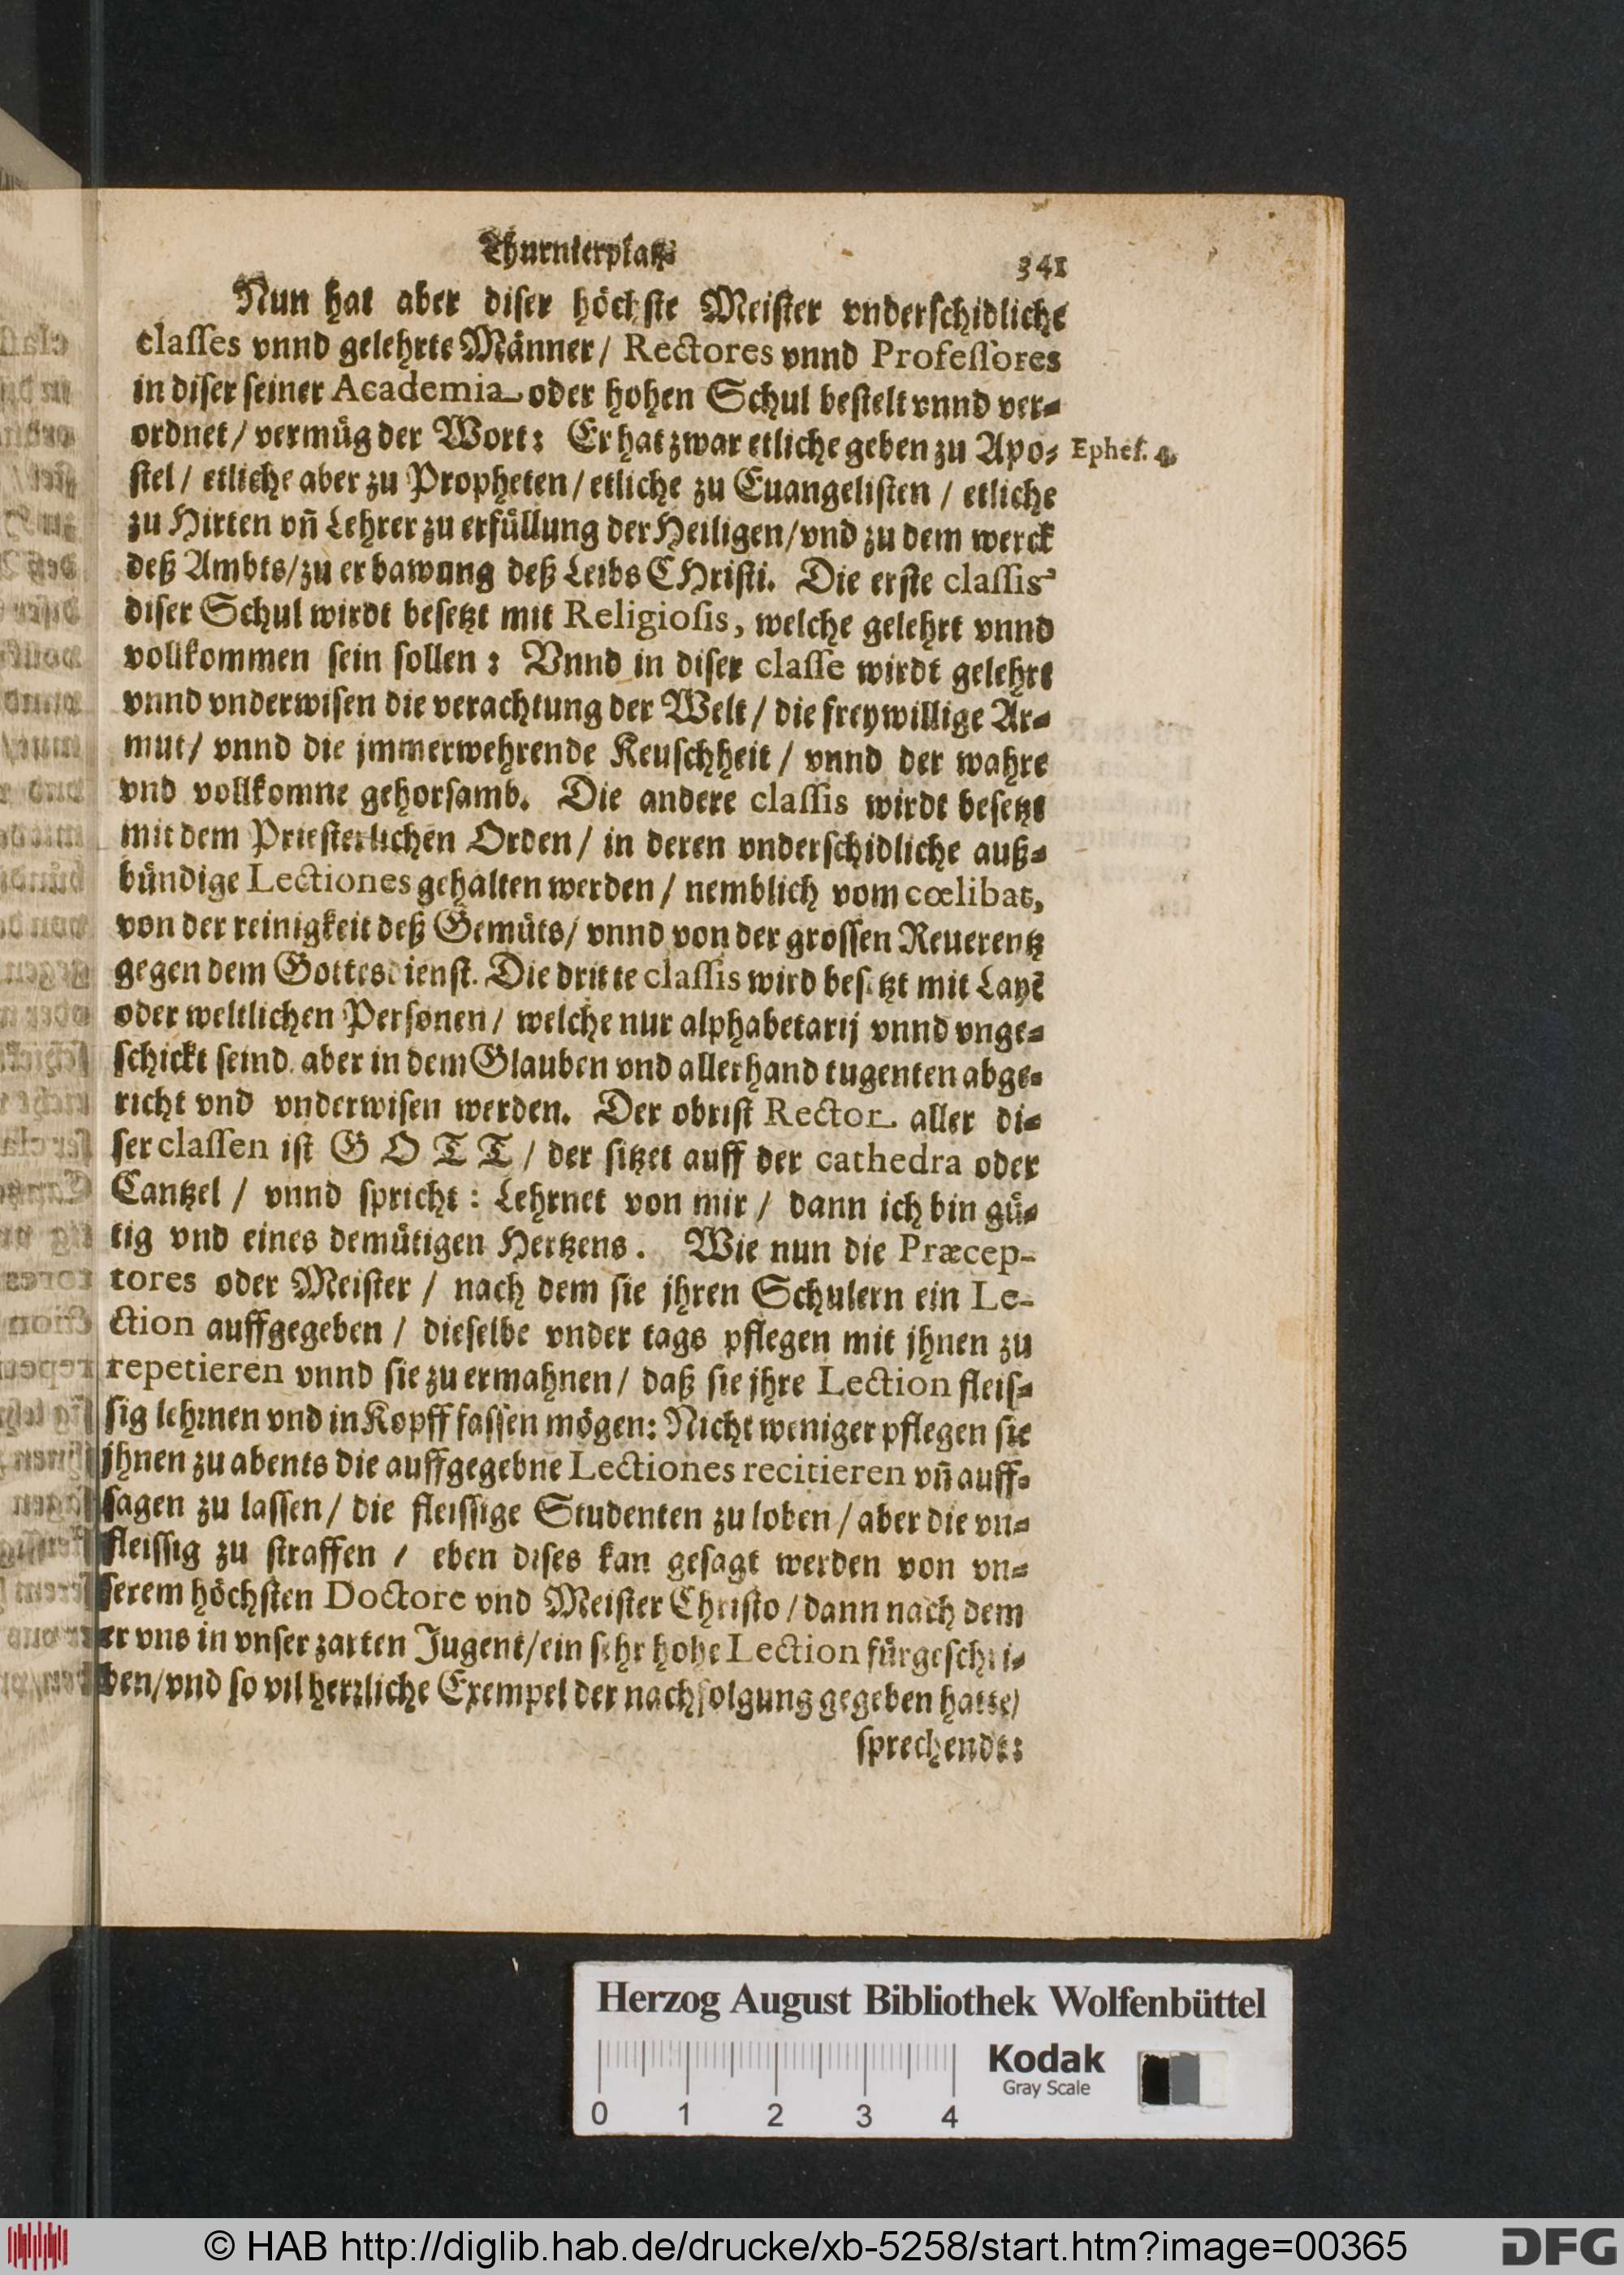 Thurnierplatz.
341
Nun hat aber diser höchste Meister vnderschidliche
classes vnnd gelehrte Männer / Rectores vnnd Professores
in diser seiner Academia oder hohen Schul bestelt vnnd ver-
ordnet / vermüg der Wort: Er hat zwar etliche geben zu Apo-
Ephes. 4.
stel / etliche aber zu Propheten / etliche zu Euangelisten / etliche
zu Hirten vñ Lehrer zu erfüllung der Heiligen / vnd zu dem werck
deß Ambts / zu erbawung deß Leibs CHristi. Die erste classis
diser Schul wirdt besetzt mit Religiosis, welche gelehrt vnnd
vollkommen sein sollen: Vnnd in diser classe wirdt gelehrt
vnnd vnderwisen die verachtung der Welt / die freywillige Ar-
mut / vnnd die jmmerwehrende Keuschheit / vnnd der wahre
vnd vollkomne gehorsamb. Die andere classis wirdt besetzt
mit dem Priesterlichen Orden / in deren vnderschidliche auß-
bündige Lectiones gehalten werden / nemblich vom cœlibat,
von der reinigkeit deß Gemüts / vnnd von der grossen Reuerentz
gegen dem Gottesdienst. Die dritte classis wird besetzt mit Layẽ
oder weltlichen Personen / welche nur alphabetarij vnnd vnge-
schickt seind, aber in dem Glauben vnd allerhand tugenten abge-
richt vnd vnderwisen werden. Der obrist Rector aller di-
ser classen ist GOTT / der sitzet auff der cathedra oder
Cantzel / vnnd spricht: Lehrnet von mir / dann ich bin gü-
tig vnd eines demütigen Hertzens. Wie nun die Præcep-
tores oder Meister / nach dem sie jhren Schulern ein Le-
ction auffgegeben / dieselbe vnder tags pflegen mit jhnen zu
repetieren vnnd sie zu ermahnen / daß sie jhre Lection fleis-
sig lehrnen vnd in Kopff fassen mögen: Nicht weniger pflegen sie
jhnen zu abents die auffgegebne Lectiones recitieren vñ auff-
sagen zu lassen / die fleissige Studenten zu loben / aber die vn-
fleissig zu straffen / eben dises kan gesagt werden von vn-
serem höchsten Doctore vnd Meister Christo / dann nach dem
er vns in vnser zarten Jugent / ein sehr hohe Lection fürgeschri-
ben / vnd so vil herrliche Exempel der nachfolgung gegeben hatte /
sprechendt:
Herzog August Bibliothek Wolfenbüttel
Kodak
Gray Scale
0 1 2 3 4
© HAB http://diglib.hab.de/drucke/xb-5258/start.htm?image=00365
DFG